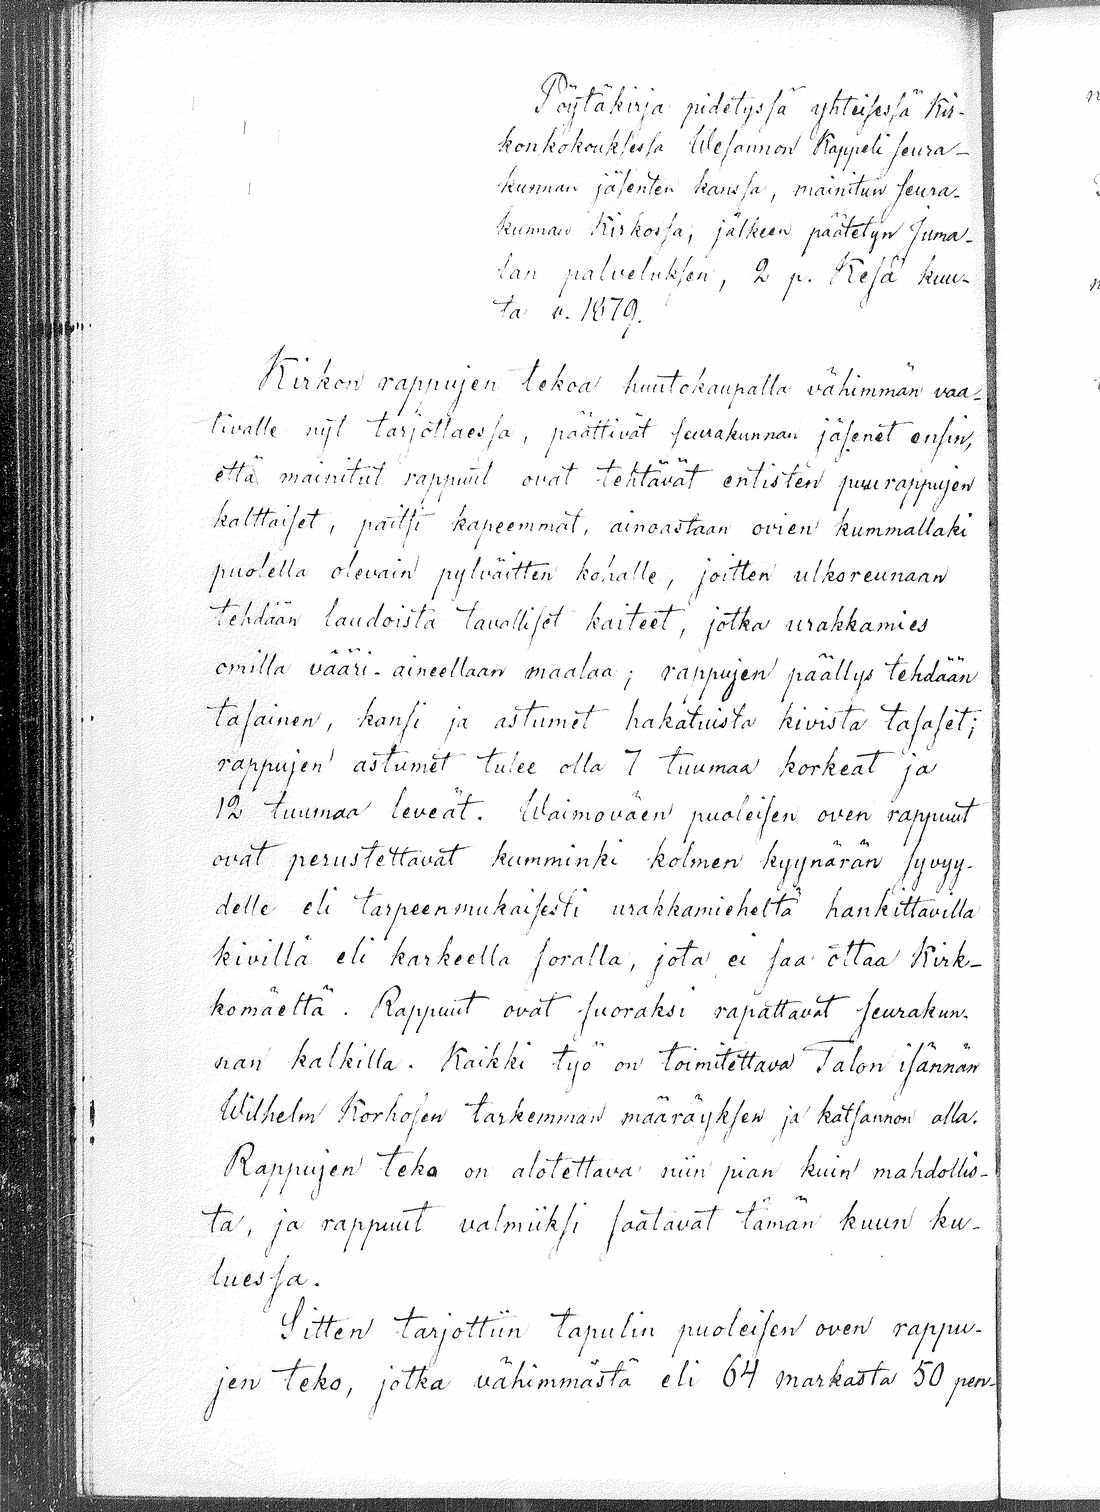 Pöytäkirja pidetyssä yhteisessä Kir-
konkokouksessa Wesannon Kappeli seura-
kunnan jäsenten kanssa, mainitun seura-
kunnan Kirkossa, jälkeen päätetyn Juma-
lan palveluksen, 2 p. Kesä kuu-
ta v. 1879.
Kirkon rappujen tekoa huutokaupalla vähimmän vaa-
tivalle nyt tarjottaessa, päättivät seurakunnan jäsenet ensin,
että mainitut rappuut ovat tehtävät entisten puurappujen
kalttaiset, paitsi kapeemmat, ainoastaan ovien kummallaki
puolella olevain pylväitten kohalle, joitten ulkoreunaan
tehdään laudoista tavalliset kaiteet, jotka urakkamies
omilla vääri-aineellaan maalaa; rappujen päällys tehdään
tasainen, kansi ja astumet hakatuista kivistä tasaset;
rappujen astumet tulee olla 7 tuumaa korkeat ja
12 tuumaa leveät. Waimoväen puoleisen oven rappuut
ovat perustettavat kumminki kolmen kyynärän syvyy-
delle eli tarpeenmukaisesti urakkamieheltä hankittavilla
kivillä eli karkeella soralla, jota ei saa ottaa Kirk-
komäeltä. Rappuut ovat suoraksi rapattavat seurakun-
nan kalkilla. Kaikki työ on toimitettava Talon isännän
Wilhelm Korhosen tarkemman määräyksen ja katsannon alla.
Rappujen teko on alotettava niin pian kuin mahdollis-
ta, ja rappuut valmiiksi saatavat tämän kuun ku-
luessa.
Sitten tarjottiin tapulin puoleisen oven rappu-
jen teko, jotka vähimmästä eli 64 markasta 50 pen-